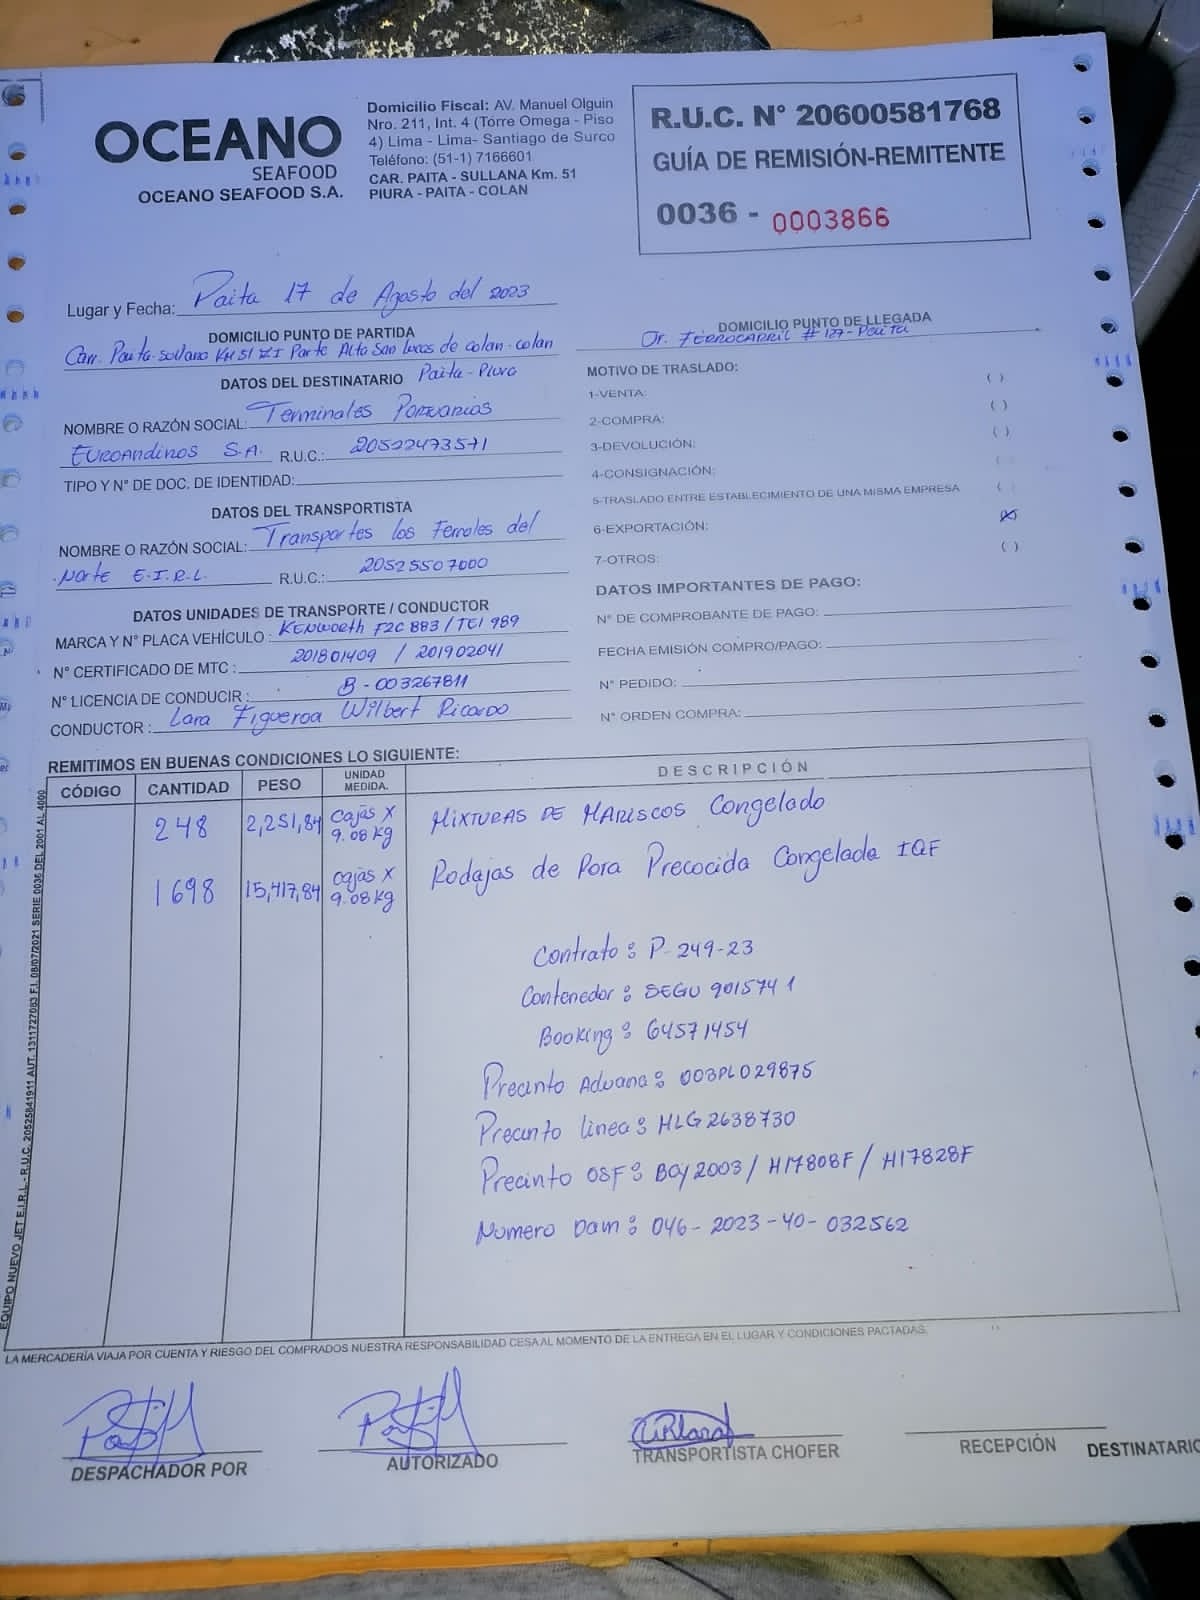 OCEANO
SEAFOOD
OCEANO SEAFOOD S.A.
Domicilio Fiscal: AV. Manuel Olguin
Nro. 211, Int. 4 (Torre Omega - Piso
4) Lima - Lima- Santiago de Surco
Teléfono: (51-1) 7166601
CAR. PAITA - SULLANA Km. 51
PIURA - PAITA - COLAN
R.U.C. N° 20600581768
GUÍA DE REMISIÓN-REMITENTE
0036 - 0003866
Lugar y Fecha: Paita 17 de Agosto del 2023
DOMICILIO PUNTO DE PARTIDA
Carr. Paita-Sullana KM 51 ZI Parte Alta San Lucas de colan-colan
Paita-Piura
DOMICILIO PUNTO DE LLEGADA
Jr. FERROCARRIL #127-Paita
DATOS DEL DESTINATARIO
NOMBRE O RAZÓN SOCIAL: Terminales Portuarios
EUROAndinos S.A. R.U.C.: 20522473571
TIPO Y N° DE DOC. DE IDENTIDAD:
DATOS DEL TRANSPORTISTA
NOMBRE O RAZÓN SOCIAL: Transportes los Ferroles del
Norte E.I.R.L. R.U.C.: 20525507000
DATOS UNIDADES DE TRANSPORTE / CONDUCTOR
MARCA Y N° PLACA VEHÍCULO : KENWORTH F2C 883 / TEI 989
N° CERTIFICADO DE MTC : 201801409 / 201902041
N° LICENCIA DE CONDUCIR : B-003267811
CONDUCTOR : Lara Figueroa Wilbert Ricardo
MOTIVO DE TRASLADO:
1-VENTA: ( )
2-COMPRA: ( )
3-DEVOLUCIÓN: ( )
4-CONSIGNACIÓN: ( )
5-TRASLADO ENTRE ESTABLECIMIENTO DE UNA MISMA EMPRESA ( )
6-EXPORTACIÓN: (X)
7-OTROS: ( )
DATOS IMPORTANTES DE PAGO:
N° DE COMPROBANTE DE PAGO:
FECHA EMISIÓN COMPRO/PAGO:
N° PEDIDO:
N° ORDEN COMPRA:
REMITIMOS EN BUENAS CONDICIONES LO SIGUIENTE:
CÓDIGO CANTIDAD PESO UNIDAD MEDIDA. DESCRIPCIÓN
248 2,251,84 Cajas X 9.08 Kg MIXTURAS DE MARISCOS Congelado
1698 15,417,84 cajas X 9.08 Kg Rodajas de Pora Precocida Congelada IQF
Contrato : P-249-23
Contenedor : SEGU 9015741
Booking : 64571454
Precinto Aduana : 003PL029875
Precinto linea : HLG2638730
Precinto OSF : BOY2003 / H17808F / H17828F
Numero Dam : 046-2023-40-032562
EQUIPO NUEVO JET E.I.R.L. - R.U.C. 20525841911 AUT. 1311727063 F.I. 08/07/2021 SERIE 0036 DEL 2001 AL 4000
LA MERCADERÍA VIAJA POR CUENTA Y RIESGO DEL COMPRADOS NUESTRA RESPONSABILIDAD CESA AL MOMENTO DE LA ENTREGA EN EL LUGAR Y CONDICIONES PACTADAS.
DESPACHADOR POR
AUTORIZADO
TRANSPORTISTA CHOFER
RECEPCIÓN
DESTINATARIO